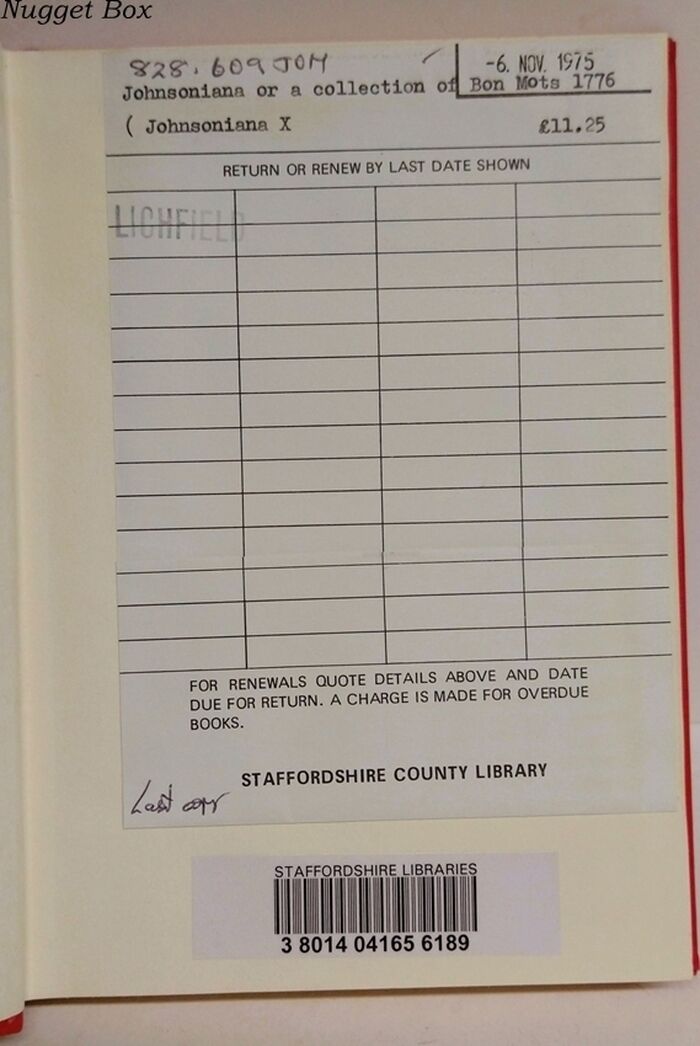 Nugget Box
828.609 JOH
-6. NOV. 1975
Johnsoniana or a collection of Bon Mots 1776
( Johnsoniana X £11.25
RETURN OR RENEW BY LAST DATE SHOWN
LICHFIELD
FOR RENEWALS QUOTE DETAILS ABOVE AND DATE
DUE FOR RETURN. A CHARGE IS MADE FOR OVERDUE
BOOKS.
STAFFORDSHIRE COUNTY LIBRARY
Last copy
STAFFORDSHIRE LIBRARIES
3 8014 04165 6189